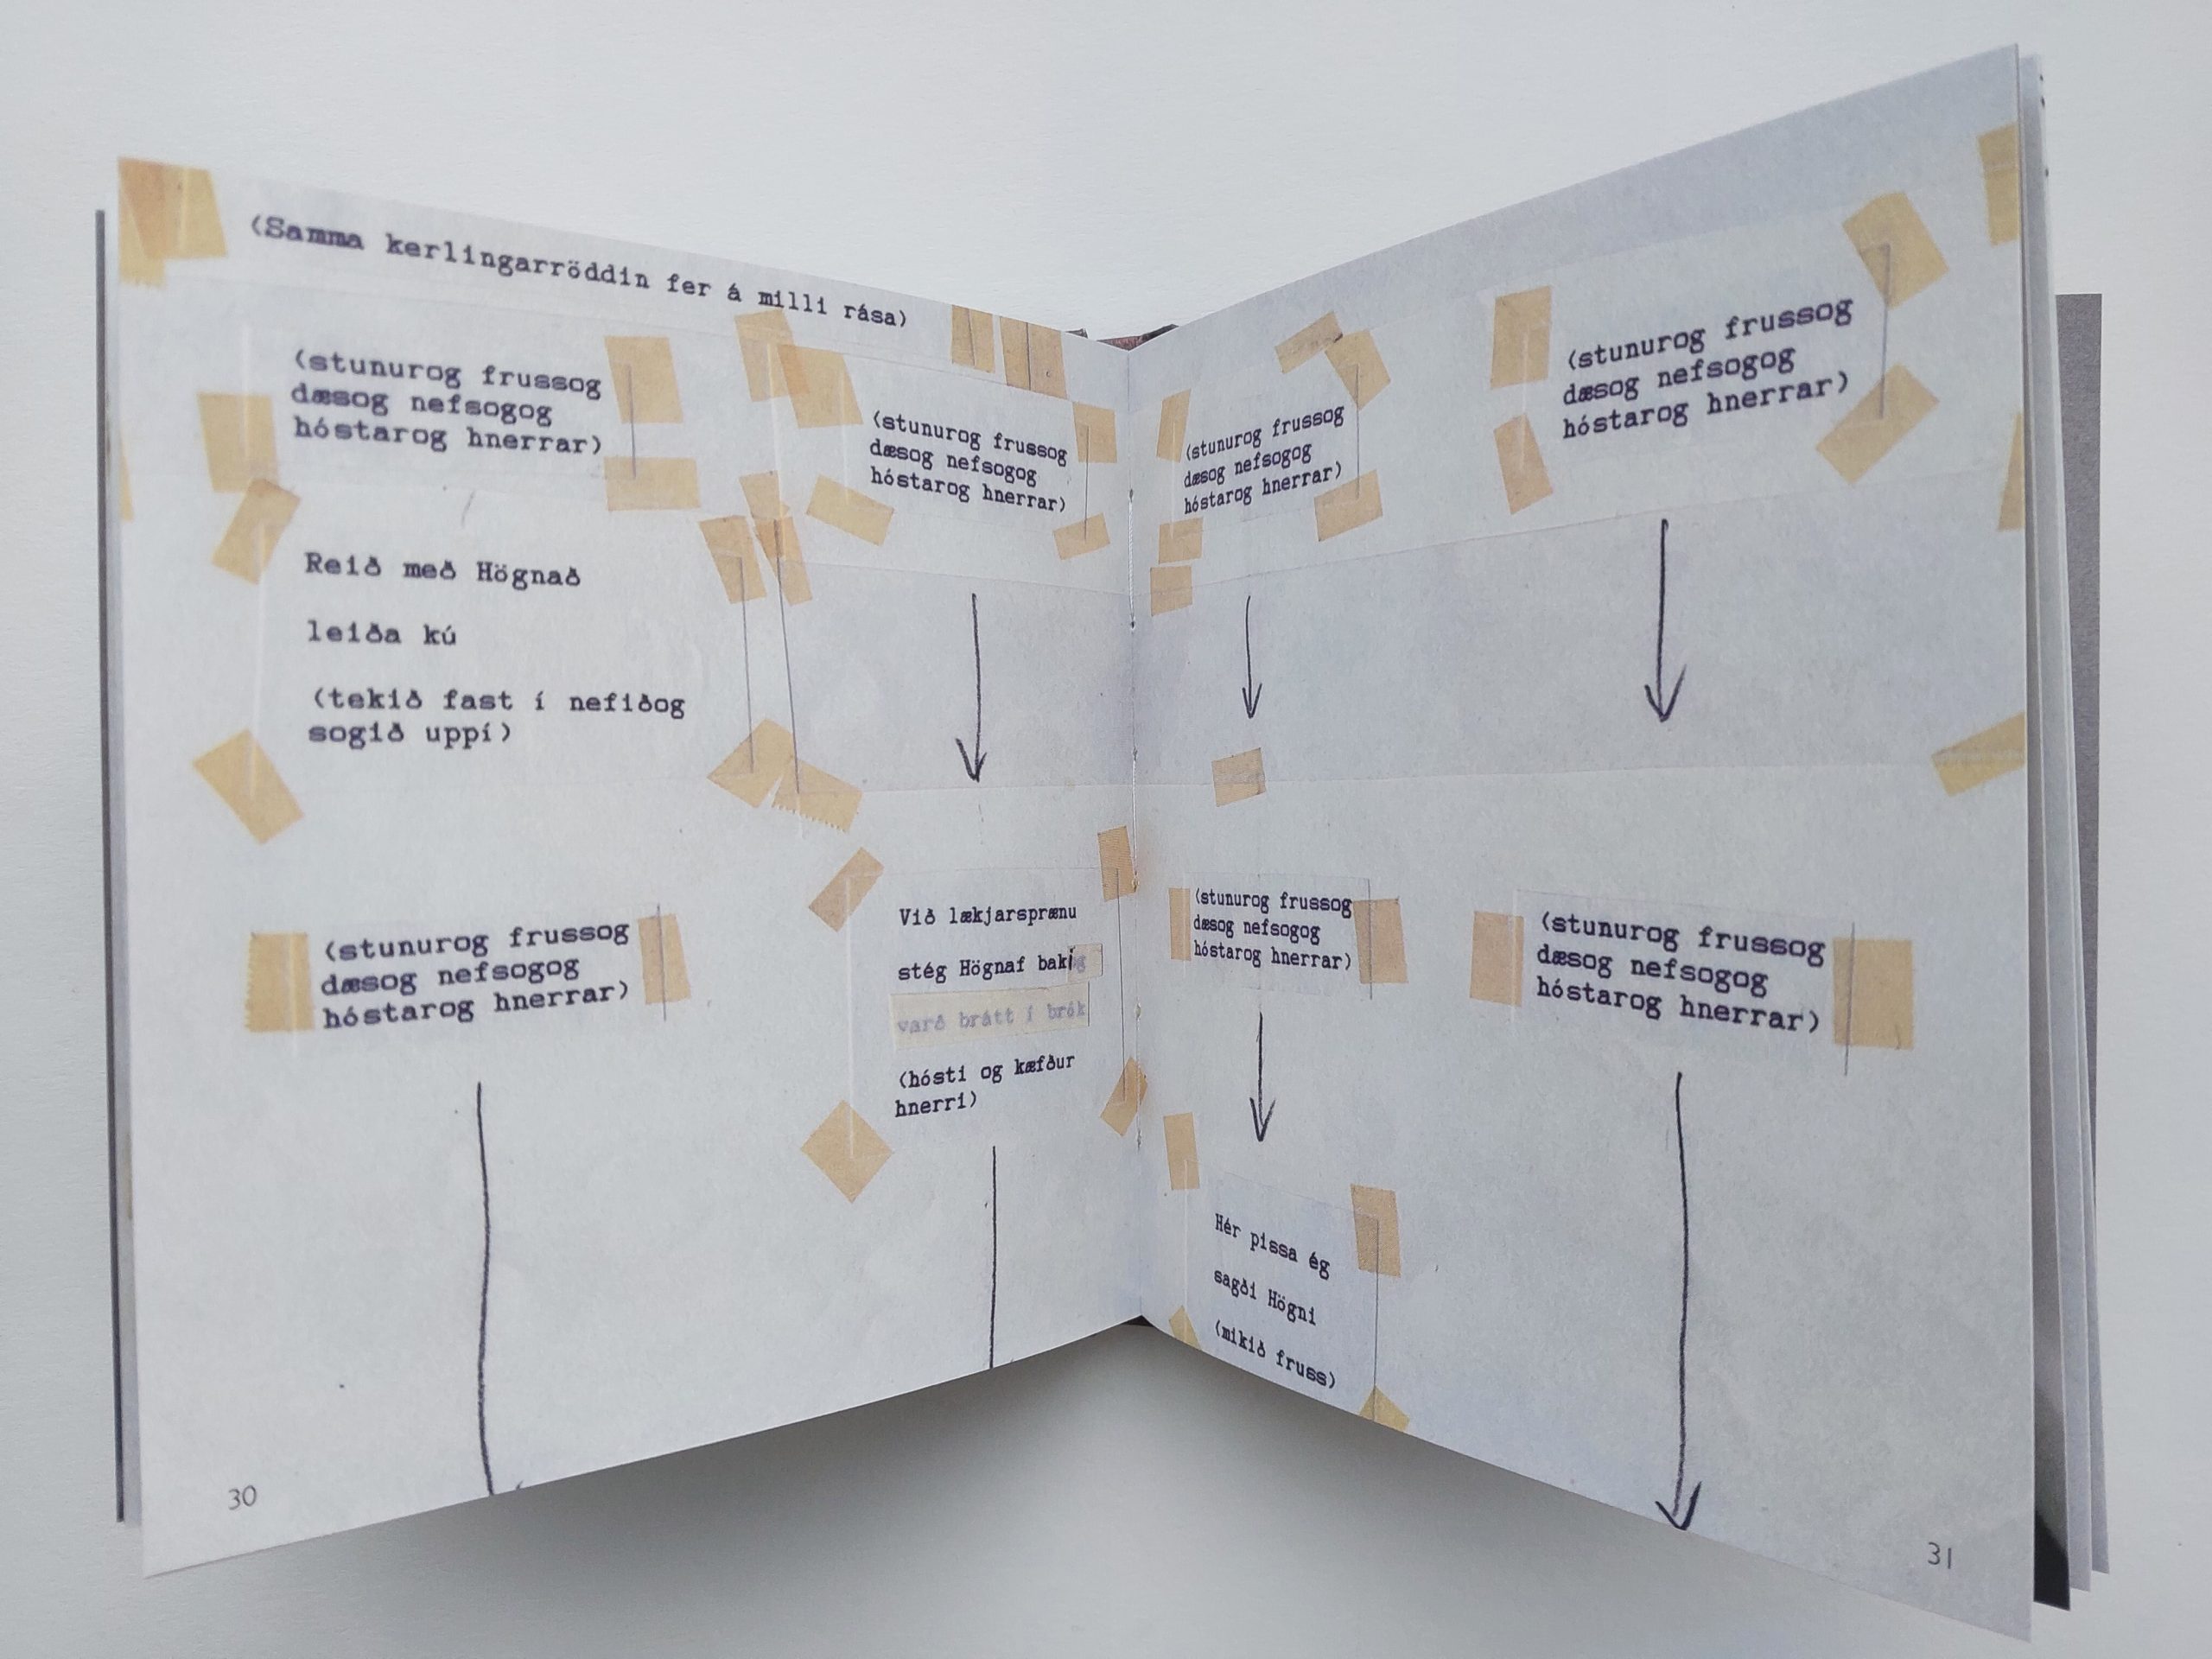 (Samma kerlingarröddin fer á milli rása)
(stunurog frussog
dæsog nefsogog
hóstarog hnerrar)
(stunurog frussog
dæsog nefsogog
hóstarog hnerrar)
Reið með Högnað
leiða kú
(tekið fast í nefiðog
sogið uppí)
(stunurog frussog
dæsog nefsogog
hóstarog hnerrar)
Við lækjarsprænu
stég Högnaf baki
varð brátt í brók
(hósti og kæfður
hnerri)
30
(stunurog frussog
dæsog nefsogog
hóstarog hnerrar)
(stunurog frussog
dæsog nefsogog
hóstarog hnerrar)
(stunurog frussog
dæsog nefsogog
hóstarog hnerrar)
(stunurog frussog
dæsog nefsogog
hóstarog hnerrar)
Hér pissa ég
sagði Högni
(mikið fruss)
31